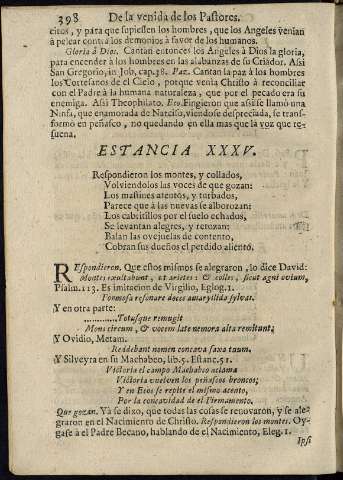 398 De la venida de los Pastores.
citos, y para que supiessen los hombres, que los Angeles venian
à pelear contra los demonios à favor de los humanos.
Gloria à Dios. Cantan entonces los Angeles à Dios la gloria,
para encender à los hombres en las alabanzas de su Criador. Assi
San Gregorio, in Job, cap.38. Paz. Cantan la paz à los hombres
los Cortesanos de el Cielo, porque venia Christo à reconciliar
con el Padre à la humana naturaleza, que por el pecado era su
enemiga. Assi Theophilato. Eco. Fingieron que assi se llamò una
Ninfa, que enamorada de Narciso, viendose despreciada, se trans-
formò en peñasco, no quedando en ella mas que la voz que re-
suena.
ESTANCIA XXXV.
Respondieron los montes, y collados,
Volviendolos las voces de que gozan:
Los mastines atentos, y turbados,
Parece que à las nuevas se alborozan:
Los cabritillos por el suelo echados,
Se levantan alegres, y retozan:
Balan las ovejuelas de contento,
Cobran sus dueños el perdido aliento.
REspondieron. Que estos mismos se alegraron, lo dice David:
Montes exultabunt, ut arietes: & colles, sicut agni ovium,
Psalm.113. Es imitacion de Virgilio, Eglog.1.
Formosa resonare doces amaryllida sylvas.
Y en otra parte:
............Totusque remugit
Mons circum, & vocem late nemora alta remitunt;
Y Ovidio, Metam.
Reddebant nomen concava saxa tuum.
Y Silveyra en su Machabeo, lib.5. Estanc.51.
Victoria el campo Machabeo aclama
Victoria vuelven los peñascos broncos;
Y en Ecos se repite el mismo acento,
Por la concavidad de el Firmamento.
Que gozan. Yà se dixo, que todas las cosas se renovaron, y se ale-
graron en el Nacimiento de Christo. Respondieron los montes. Oy-
gase à el Padre Becano, hablando de el Nacimiento, Eleg.1.
Ipsi